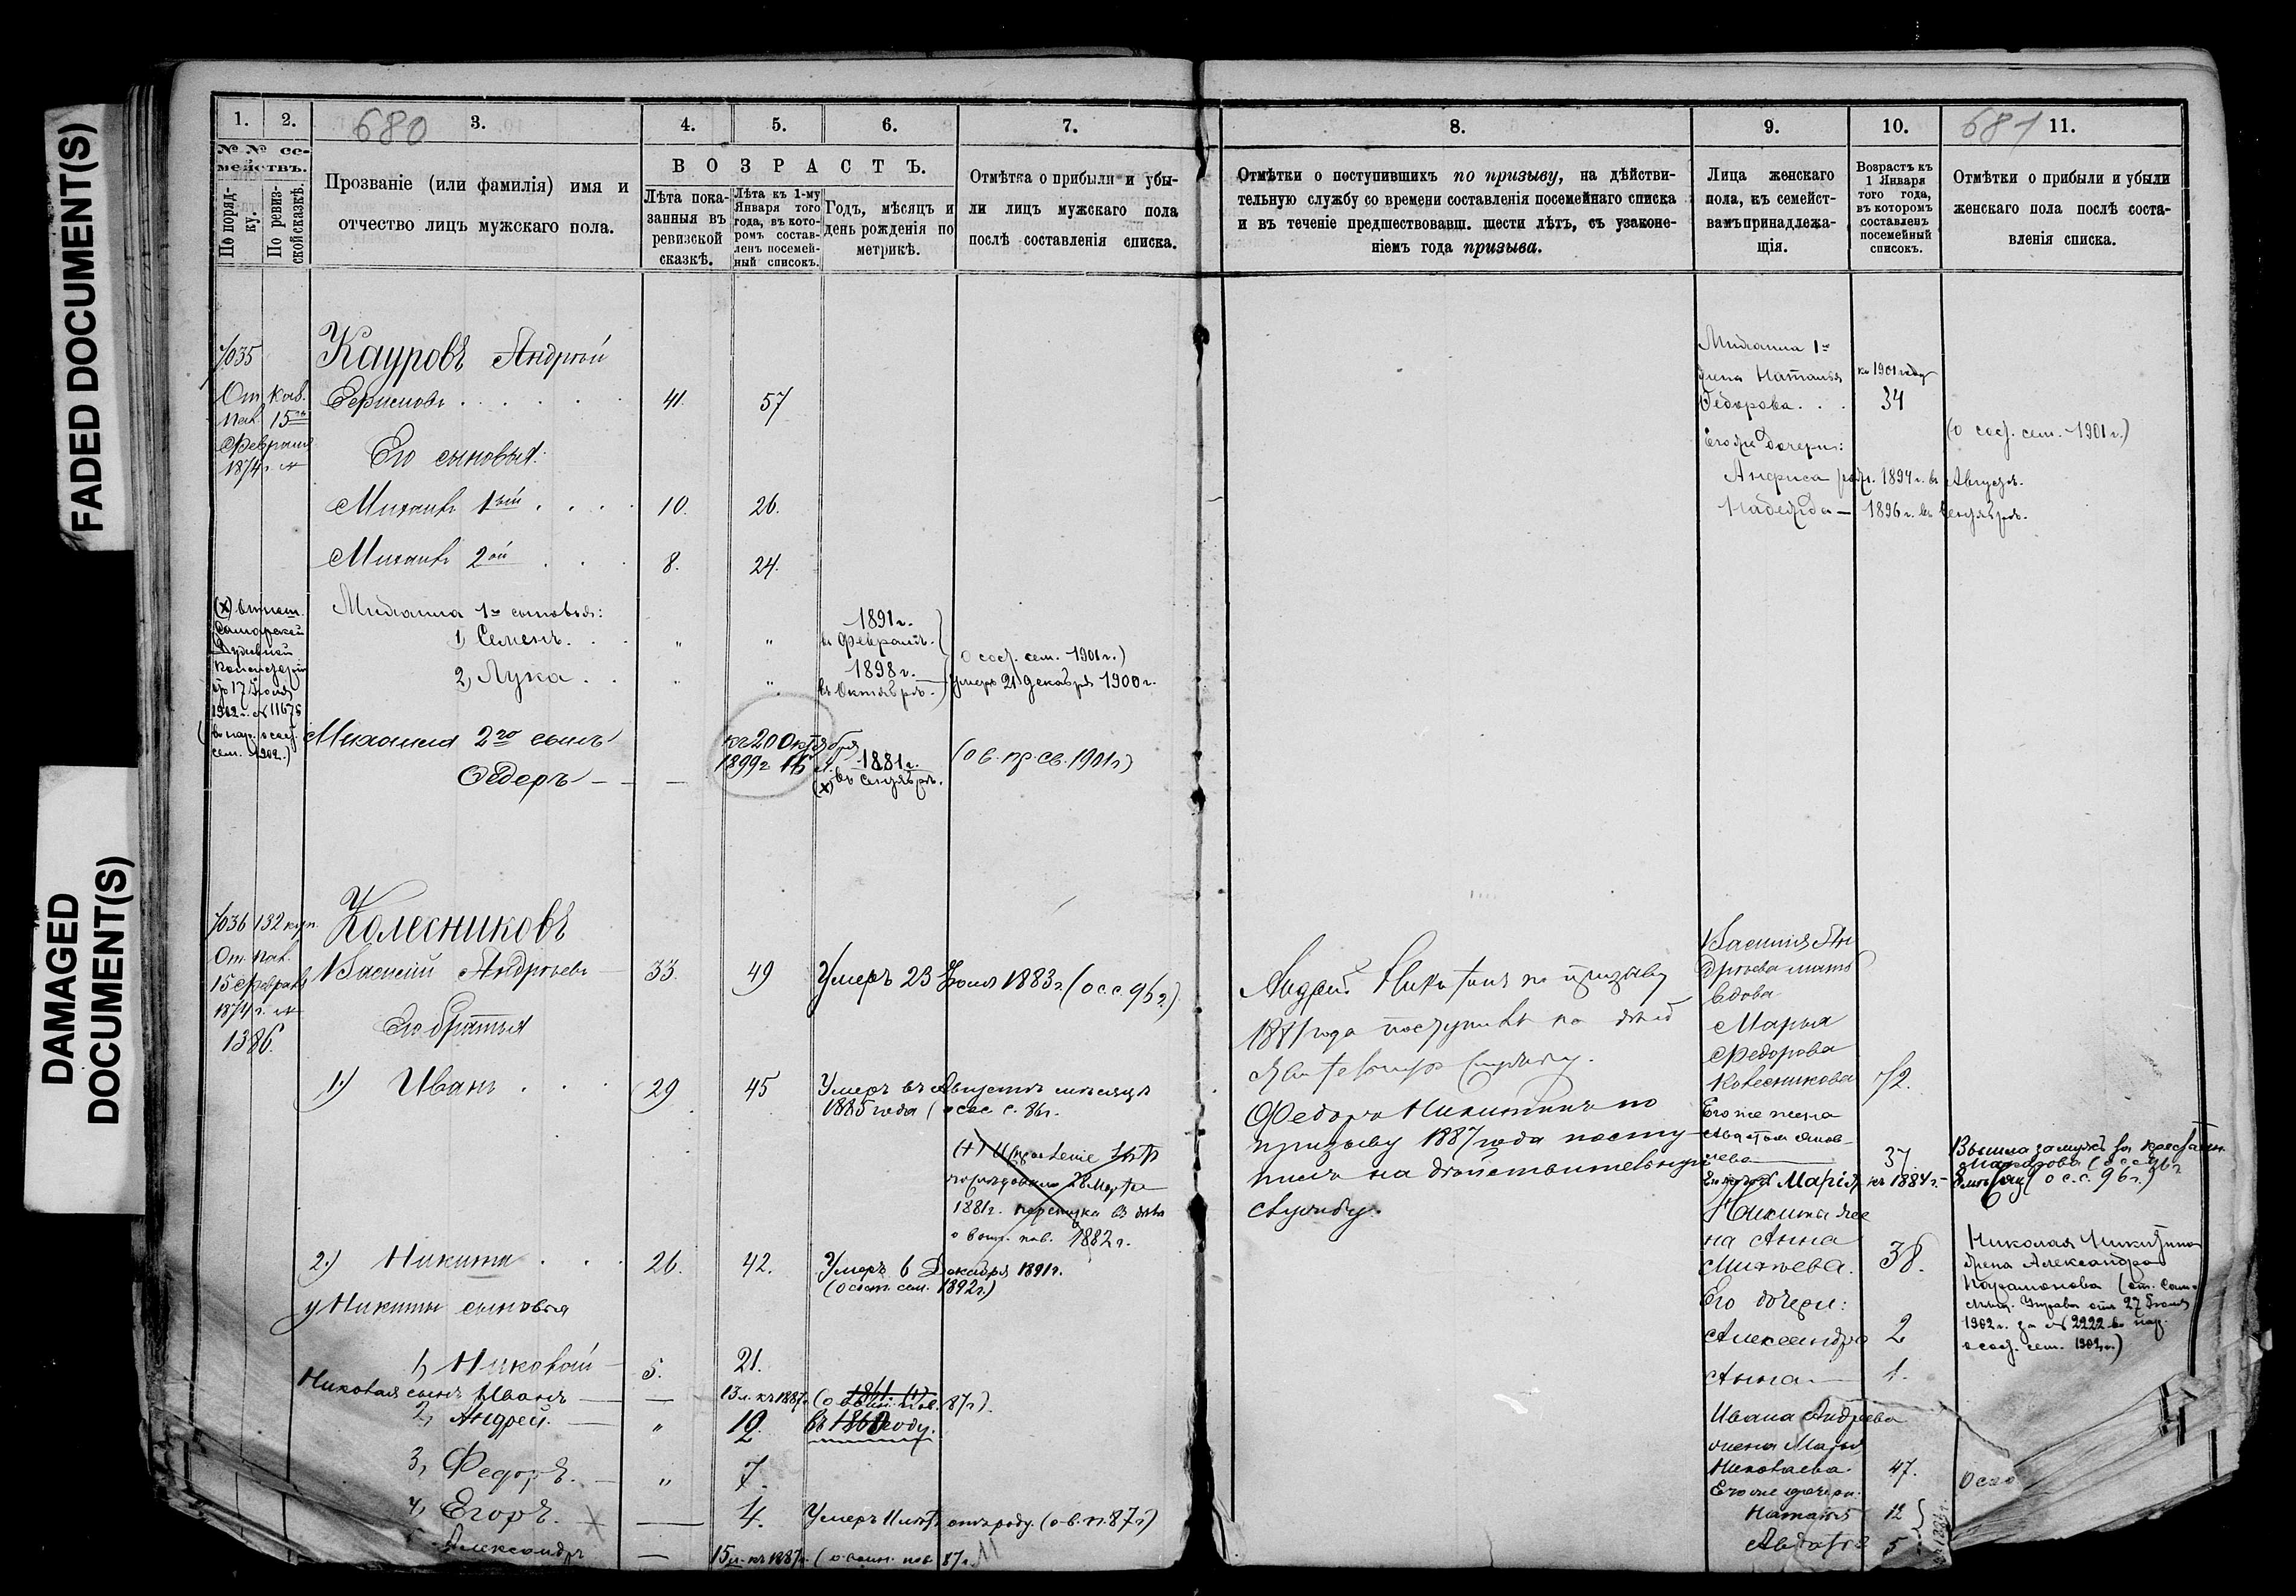 FADED DOCUMENT(S)
DAMAGED
DOCUMENT(S)
680
1.
2.
3.
4.
5.
6.
7.
№ № се-
мействъ.
По поряд-
ку.
По ревиз-
ской сказкѣ.
Прозваніе (или фамилія) имя и
отчество лицъ мужскаго пола.
ВОЗРАСТЪ.
Лѣта пока-
занныя въ
ревизской
сказкѣ.
Лѣта къ 1-му
Января того
года, въ кото-
ромъ состав-
ленъ посемей-
ный списокъ.
Годъ, мѣсяцъ и
день рожденія по
метрикѣ.
Отмѣтка о прибыли и убы-
ли лицъ мужскаго пола
послѣ составленія списка.
1035
Кауровъ Андрей
41.
57
От
Февраля
1874 г. №
Его сыновья:
Михаилъ 1ый
10.
26.
Михаилъ 2ой
8.
24.
Михаила 1го сыновья:
1, Семенъ.
1891 г.
въ Февралѣ.
2, Лука
1898 г.
въ Октябрѣ.
о сост. сем. 1901 г.)
умеръ 21 декабря 1900 г.
(х)
Самарской
Духовной
Консисторіи
17 Іюля
1902 г. № 11675
сем. 1902.)
Михаила 2го сынъ
Ѳедоръ
къ 20 Октября
1899 г.
1881 г.
(х) въ Сентябрѣ.
(о в. пр. св. 1901 г)
1036
132
Колесниковъ
15 Февраля
1874 г. №
1386.
Василій Андреевъ
33.
49
Умеръ 23 Іюля 1883 г. (о с. с. 96 г.)
Его братья
1.) Иванъ
29
45
Умеръ въ Августѣ мѣсяцѣ
1885 года
(+)
1881 г.
1882 г.
2.) Никита
26.
42.
Умеръ 6 Декабря 1891 г.
(о сост. сем. 1892 г.)
у Никиты сыновья
1, Николай
5.
21.
Николая сынъ Иванъ
13 л. къ 1887 г.
87 г).
2, Андрей.
12.
3, Федоръ.
7.
4, Егоръ.
4.
Умеръ (о в. п. 87 г)
Александръ
15 л. къ 1887 г. (о воин. пов. 87 г.
681
8.
9.
10.
11.
Отмѣтки о поступившихъ по призыву, на дѣйстви-
тельную службу со времени составленія посемейнаго списка
и въ теченіе предшествовавш. шести лѣтъ, съ узаконе-
ніемъ года призыва.
Лица женскаго
пола, къ семейст-
вамъ принадлежа-
щія.
Возрастъ къ
1 Января
того года,
въ которомъ
составленъ
посемейный
списокъ.
Отмѣтки о прибыли и убыли
женскаго пола послѣ соста-
вленія списка.
Михаила 1го
жена Наталья
Ѳедорова.
къ 1901 году
34
(о сост. сем. 1901 г.)
Его же дочери:
Анфиса род. 1894 г. въ Августѣ.
Надежда — 1896 г. въ Сентябрѣ.
Андрей Никитинъ по призыву
1881 года поступилъ на дѣй
ствительную службу.
Федоръ Никитинъ по
призыву 1887 года посту
пилъ на дѣйствительную
службу.
Василія Ан
дреева мать
вдова
Марья
Федорова
Колесникова
72.
Его же жена
37
Вышла замужъ за
Марія
къ 1884 г.
(о с. с. 96 г.)
Никиты же
на Анна
38.
Его дочери:
Александра
2
Анна
1.
Николая Никитина
жена Александра
27 Іюля
1902 г. за № 2222
о сост. сем. 1902 г.)
Ивана Андреева
жена Марья
Николаева.
47.
Его же дочери:
Наталья
12
Авдотья
5